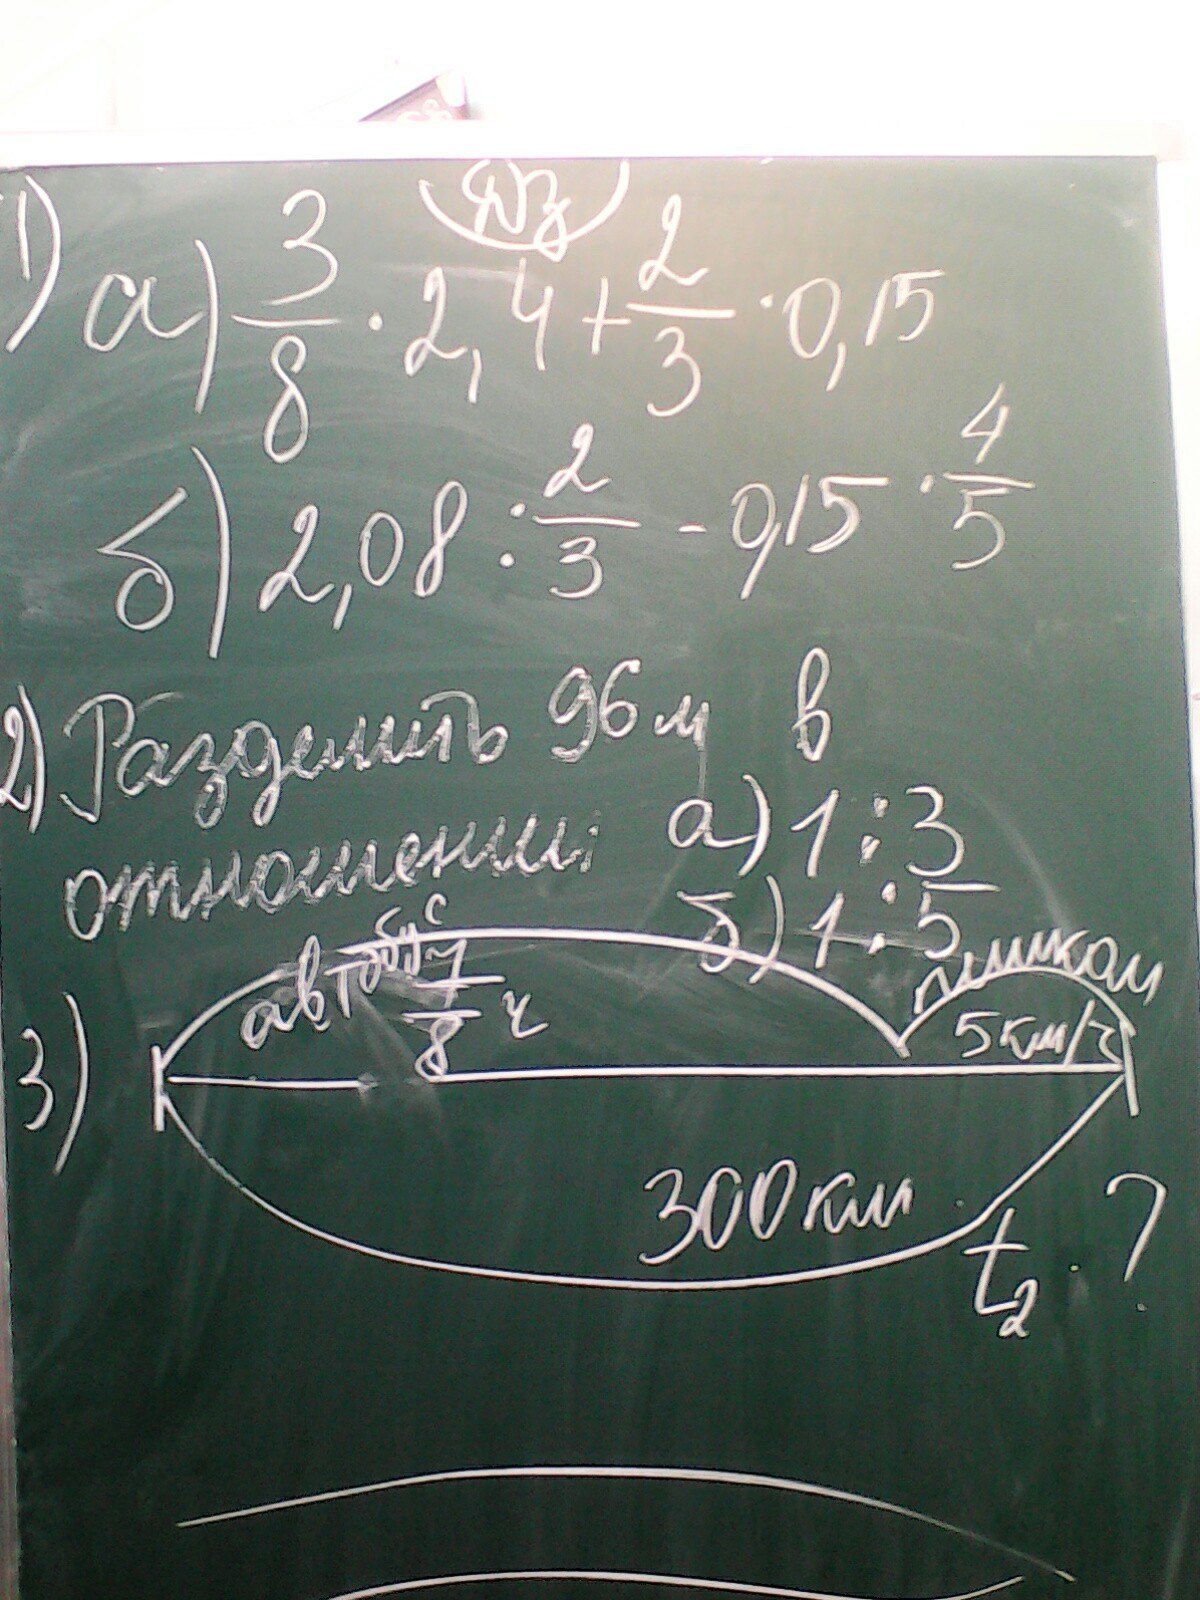 ДЗ
1) а) 3/8 · 2,4 + 2/3 · 0,15
б) 2,08 : 2/3 - 0,15 · 4/5
2) Разделить 96 м в
отношении: а) 1 : 3
б) 1 : 5
3) автобус 7/8 ч пешком
5 км/ч
300 км
t₂ ?